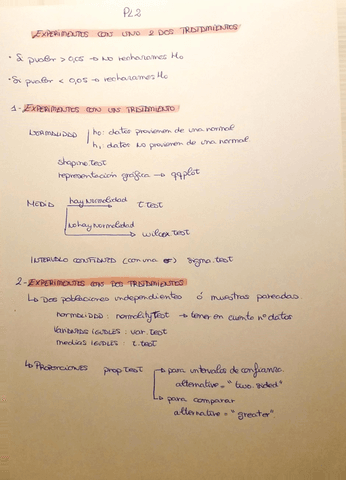 PL2
EXPERIMENTOS CON UNO O DOS TRATAMIENTOS
· Si pvalor > 0,05 → NO rechazamos H0
· Si pvalor < 0,05 → rechazamos H0
1- EXPERIMENTOS CON UN TRATAMIENTO
NORMALIDAD h0: datos provienen de una normal
h1: datos NO provienen de una normal
shapiro.test
representación gráfica → qqplot
MEDIA hay normalidad t.test
No hay normalidad
wilcox.test
INTERVALO CONFIANZA (con una σ) sigma.test
2- EXPERIMENTOS CON DOS TRATAMIENTOS
↳ Dos poblaciones independientes ó muestras pareadas.
NORMALIDAD: normalityTest → tener en cuenta nº datos
VARIANZAS IGUALES: var.test
medias IGUALES: t.test
↳ PROPORCIONES prop.test → para intervalos de confianza
alternative = "two.sided"
↳ para comparar
alternative = "greater"